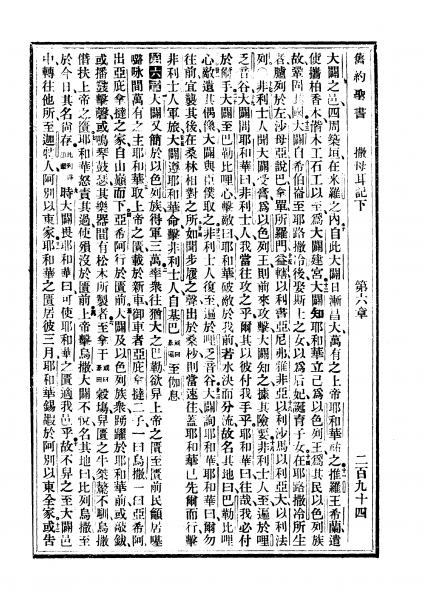 舊約聖書 撒母耳記下 第六章 二百九十四
大闢之邑四周築垣在米羅之內自此大闢日漸昌大萬有之上帝耶和華祐之推羅王希蘭遣
使攜柏香木偕木工石工以至爲大闢建宮大闢知耶和華立己爲以色列王爲其民以色列族
故鞏固其國大闢自希伯崙至耶路撒冷後娶斯土之女以爲后妃誕育子女在耶路撒冷所生
者臚列於左沙母亞說巴拿單所羅門益轄以利書亞尼弗雅非亞以利沙馬以利亞大以利法
列非利士人聞大闢受膏爲以色列王則前來攻擊大闢知之據其險要非利士人至遍於哩
乏音谷大闢問耶和華曰非利士人我當往攻之乎爾其以彼付我手乎耶和華曰往哉我必付
於爾手大闢至巴勒比哩心擊敵曰耶和華破敵於我前若水決而分流故名其地曰巴勒比哩
心敵遺其偶像大闢與臣僕取之非利士人復至遍於哩乏音谷大闢詢耶和華耶和華曰爾勿
往前宜襲其後在桑林相對之所如聞步履之聲出於桑杪則當速往蓋耶和華已先爾而行擊
非利士人軍旅大闢遵耶和華命擊非利士人自基巴至伽息
第六章大闢又簡於以色列族得軍三萬率衆往猶大之巴勒欲舁上帝之匱至匱前民籲居
咏間萬有之主耶和華取上帝之匱載於新車御車者亞庇拿撻二子一曰烏撒一曰亞希阿
出亞庇拿撻之家自山巔而下亞希阿行於匱前大闢及以色列族衆踴躍於耶和華前或敲鈸
或播鼗擊磬或鳴琴鼓瑟其樂器間有松木所製者至拿干穀場舁匱之牛桀驁不馴烏撒
僭扶上帝之匱耶和華怒責其過使殞沒於匱前上帝擊烏撒大闢不悅名其地曰比列烏撒至
於今日其名尚存時大闢畏耶和華曰可使耶和華之匱適我邑乎故不舁之至大闢邑
中轉往他所至迦特人阿別以東家耶和華之匱居彼三月耶和華錫嘏於阿別以東全家或告